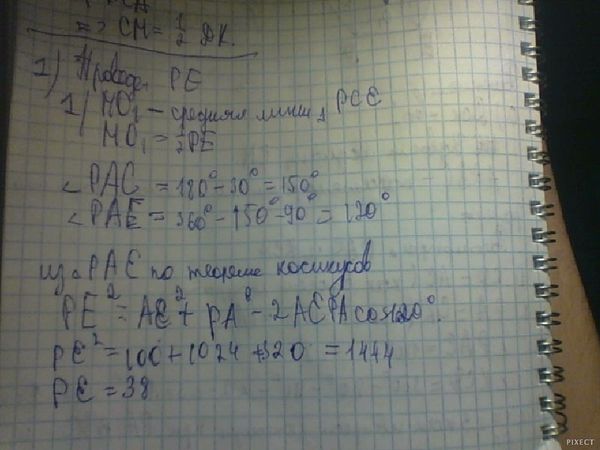 => CM = 1/2 ДК.
1) Проведем PE
1) MO₁ – средняя линия Δ PCE
MO₁ = 1/2 PE
∠ PAC = 180° - 30° = 150°
∠ PAE = 360° - 150° - 90° = 120°
из Δ PAE по теореме косинусов
PE² = AE² + PA² - 2AE PA cos120°.
PE² = 100 + 1024 + 320 = 1444
PE = 38
PIXECT